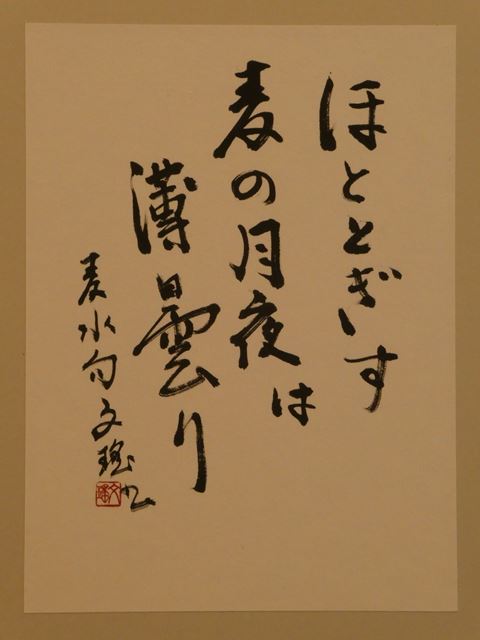 ほととぎす
麦の月夜は
薄曇り
麦水句 文瑤書